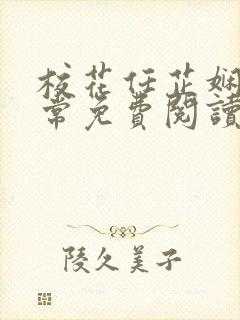 校花任芷娴
常免費閱讀
陵久美子